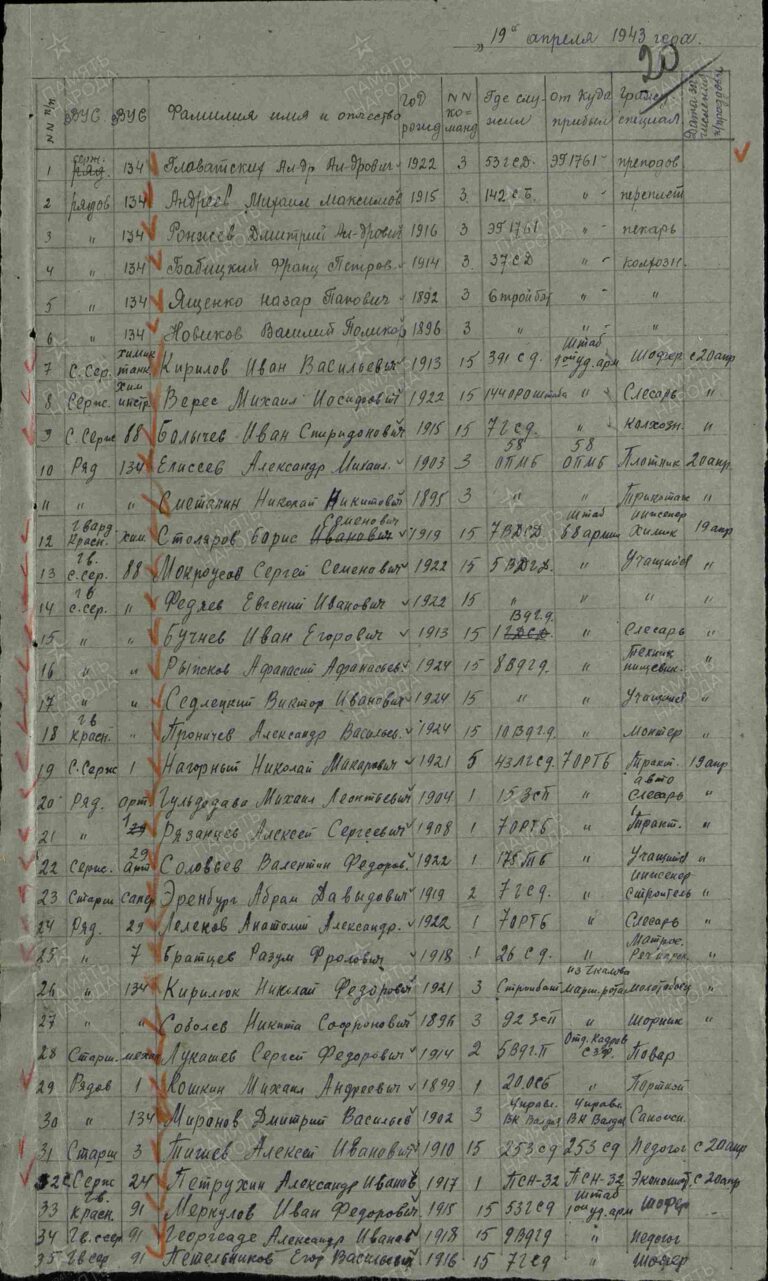 „19го апреля 1943 года.
20
NN п/п ВУС ВУС Фамилия имя и отчество Год рожд NN команд Где служил От куда прибыл Гражд. специал. Дата зачисления
1 серж. ряд. 134 Главатских Ал-др Ал-дрович 1922 3 53 гсд. ЭГ1761 преподов
2 рядов 134 Андреев Михаил Максимов 1915 3 142 с.б. " переплет
3 " 134 Ронжев Дмитрий Ал-дрович 1916 3 ЭГ1761 " пекарь
4 " 134 Бабицкий Франц Петров. 1914 3 37 СД " колхозн.
5 " 134 Ященко Назар Папович 1892 3 стройбат " "
6 " 134 Новиков Василий 1896 3 " " "
7 С.Сер. химик танк Кирилов Иван Васильевич 1913 15 391 сд. Штаб 1ой уд. арм Шофер с 20 апр
8 Серж. хим инстр. Верес Михаил Иосифович 1922 15 " Слесарь "
9 С.Серж 88 Болычев Иван Спиридонович 1915 15 7 гсд. " Колхозн. "
10 Ряд 134 Елиссев Александр Михаил. 1903 3 58 ОПМБ 58 ОПМБ Плотник 20 апр
11 " " Сметанин Николай Никитович 1895 3 " " Трикотаж "
12 Гвард. Красн. хим. Столяров Борис Семенович Иванович 1919 15 7 ВДСД Штаб 68 армии инженер Химик 19 апр
13 Гв. с.сер. 88 Мокроусов Сергей Семенович 1922 15 5 ВДГД. " Учащийся "
14 Гв с.сер. " Федяев Евгений Иванович 1922 15 " " " "
15 " " Бучнев Иван Егорович 1913 15 1 Вдгд. " Слесарь "
16 " " Рыжков Афанасий Афанасьев. 1924 15 8 Вдгд. " Техник пищевик. "
17 " " Седлецкий Виктор Иванович 1924 15 " " Учащийся "
18 Гв Красн. " Проничев Александр Васильев. 1924 15 10 Вдгд. " Монтер "
19 С.Серж 1 Нагорный Николай Макарович 1921 5 43 лгсд. 7 ОРТБ Тракт. 19 апр
20 Ряд. арт. Гульдедава Михаил Леонтьевич 1904 1 15 зсп " авто Слесарь "
21 " 1 29 Рязанцев Алексей Сергеевич 1908 1 7 ОРТБ " Тракт. "
22 Серж. 29 арт Соловьев Валентин Федоров. 1922 1 175 ТБ " Учащийся "
23 Старш Сапер Эренбург Абрам Давыдович 1919 2 7 гсд. " инженер строитель "
24 Ряд. 29 Леленов Анатолий Александр. 1922 1 7 ОРТБ " Слесарь "
25 " 7 Братцев Разум Фролович 1918 1 26 сд. " Матрос. "
26 " 134 Кирилюк Николай Федорович 1921 3 Стройбат из Чкалова марш.рота Молотобоец "
27 " " Соболев Никита Софронович 1896 3 92 зсп " Шорник "
28 Старш. механ Лукашев Сергей Федорович 1914 2 5 Вдг.п Отд. Кадров СЗФ. Повар
29 Рядов 1 Кошкин Михаил Андреевич 1899 1 20 ОСБ " Портной
30 " 134 Миронов Дмитрий Васильев 1902 3 Управл. ВК Валдая Управл. ВК Валдая Сапожн.
31 Старш 3 Тишев Алексей Иванович 1910 15 253 сд 253 сд Педогог с 20 апр
32 С Серж 24 Петрухин Александр Иванов 1917 1 ПСН-32 ПСН-32 Экономист с 20 апр
33 Гв. Красн. 91 Меркулов Иван Федорович 1915 15 53 гсд Штаб 1ой уд. арм Шофер
34 Гв.ссер 91 Георгеаде Александр Иванов 1918 15 9 Вдгд " педогог
35 Гвсер 91 Петельников Егор Васильевич 1916 15 7 гсд " Шофер